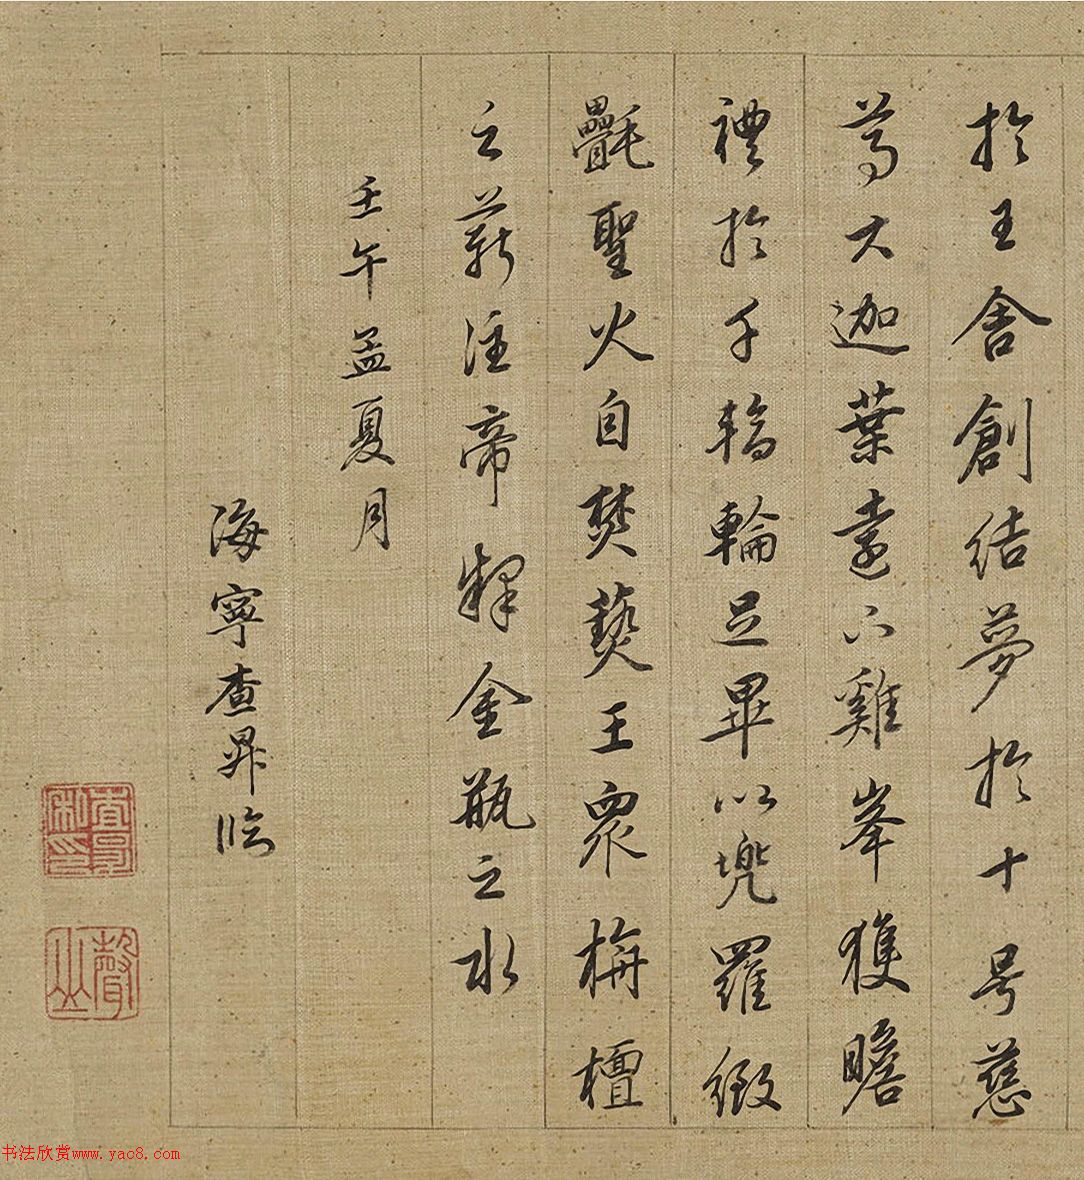 於王舍創結夢於十号慈
尊大迦葉遠下雞峯獲瞻
禮於千輻輪足畢以兜羅緻
氎聖火自焚爇王眾栴檀
之薪注帝釋金瓶之水
壬午孟夏月
海寧查昇臨
查昇私印
聲山
书法欣赏www.yac8.com